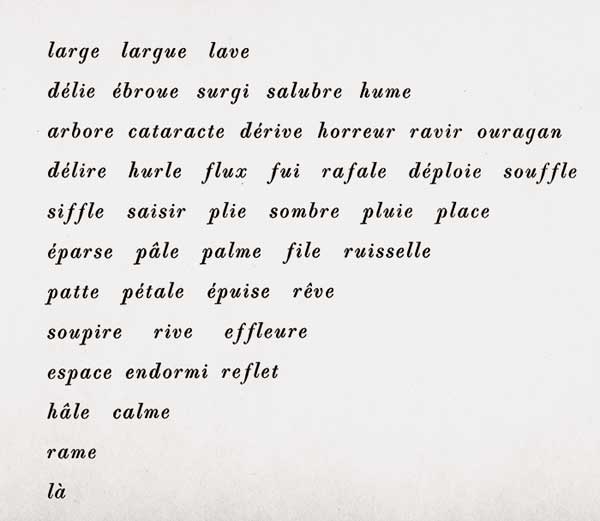 large largue lave
délie ébroue surgi salubre hume
arbore cataracte dérive horreur ravir ouragan
délire hurle flux fui rafale déploie souffle
siffle saisir plie sombre pluie place
éparse pâle palme file ruisselle
patte pétale épuise rêve
soupire rive effleure
espace endormi reflet
hâle calme
rame
là